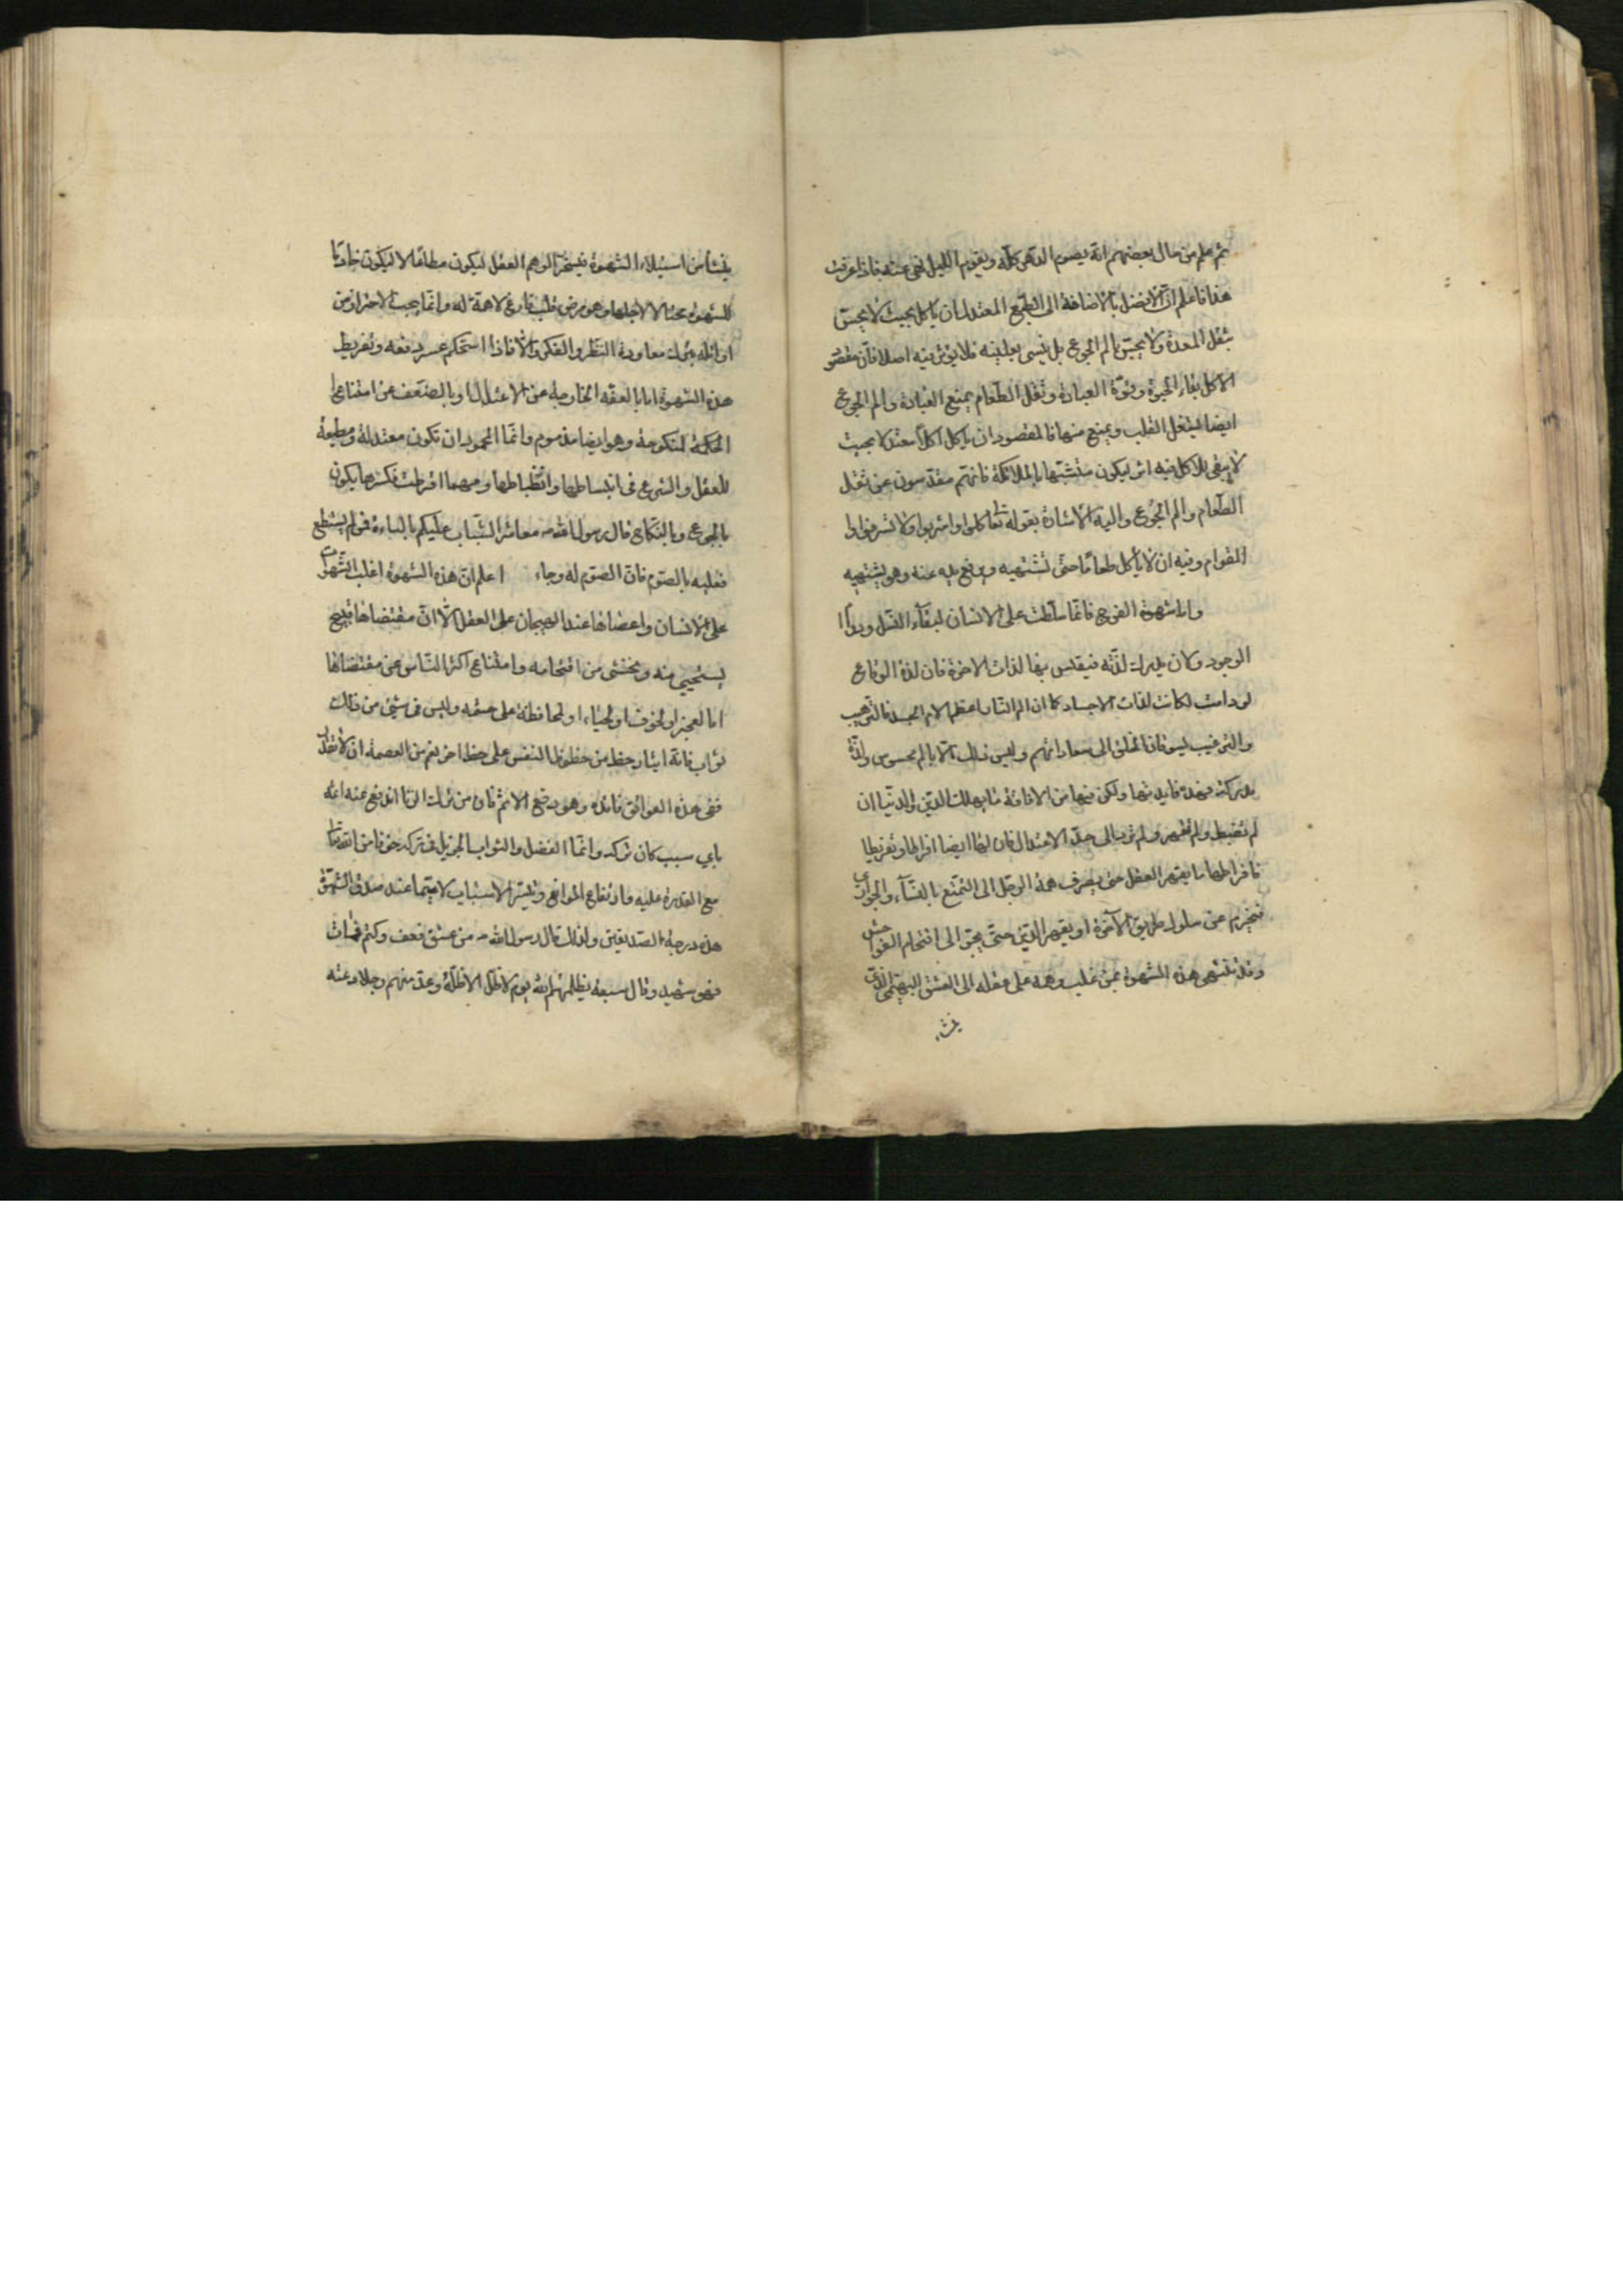 ثم علم من حال بعضهم انّه يصوم الدّهر كلّه ويقوم اللّيل نهى عنه فاذا عرفت
هذا فاعلم انّ الافضل بالاضافة الى الطّبع المعتدل ان ياكل بحيث لا يحسّ
بثقل المعدة ولا يحسّ بالم الجوع بل ينسى بطنه فلا يؤثر فيه اصلا فانّ مقصود
الاكل بقاء الحيوة وقوّة العبادة وثقل الطّعام يمنع العبادة والم الجوع
ايضا يشغل القلب ويمنع منها فالمقصود ان ياكل اكلاً معتدلا بحيث
لا يبقى للاكل فيه اثر ليكون متشبّها بالملائكة فانهم مقدسون عن ثقل
الطّعام والم الجوع واليه الاشارة بقوله تعا كلوا واشربوا ولا تسرفوا
القوام وفيه ان لا ياكل طعاما حتى تشتهيه ويرفع يده عنه وهو يشتهيه
واما شهوة الفرج فانّما سلّطت على الانسان لبقآء النسل ودوام
الوجود وكان يدرك لذّته فيقيس بها لذات الاخرة فان لذة الوقاع
لو دامت لكانت لذات الاجساد كما ان الم النّار اعظم الام الجسد فالترهيب
والترغيب يسوقان الخلق الى سعاداتهم وليس ذلك الّا بالم محسوس ولذّة
مدركة فهذه فايدتها ولكن فيها من الافافة ما يهلك الدّين والدنيا ان
لم تضبط ولم تقهر ولم تردّ الى حدّ الاعتدال فان لها ايضا افراطا وتفريطا
فافراطها ما يقهر العقل حتى يصرف همة الرجل الى التمتّع بالنسآء والجواري
فيحرم عن سلوك طريق الآخرة او يقهر الدّين حتّى يجرّ الى اقتحام الفواحش
وقد تنتهى هذه الشهوة بمن غلب وهمه على عقله الى العشق البهيمي الّذي
ينشاء
ينشأ من استيلاء الشهوة فيسخّر الوهم العقل ليكون مطاعًا لا ليكون خادما
للشهوة محتالا لاجلها وهو مرض قلب فارغ لا همّة له وانّما يجب الاحتراز من
اوائله بترك معاودة النّظر والفكر والّا فاذا استحكم عسر دفعه وتفريط
هذه الشهوة اما بالعفّه الخارجة عن الاعتدال او بالضّعف عن امتناع
الحكمة المنكوحة وهو ايضا مذموم وانّما المحمود ان تكون معتدلة ومطيعة
للعقل والشرع في انبساطها وانقباطها ومهما افرطت فكسرها يكون
بالجوع وبالنّكاح قال رسول الله ص معاشر الشّباب عليكم بالباءة فمن لم يستطع
فعليه بالصّوم فانّ الصّوم له وجاء اعلم انّ هذه الشهوة اغلب الشّهوات
على الانسان واعصاها عند الهيجان على العقل الّا انّ مقتضاها قبيح
يستحيى منه ويخشى من اقتحامه وامتناع اكثر النّاس عن مقتضاها
اما لعجز او لخوف او لحياء او لمحافظة على حشمه وليس في شيئ من ذلك
ثواب فانّه ايثار حظ من حظوظ النفس على حظ اخر نعم من العصمة ان لا تقدر
ففي هذه العوائق فائدة وهو دفع الاثم فان من ترك الزنا اندفع عنه اثمه
باي سبب كان تركه وانّما الفضل والثواب الجزيل في تركه خوفا من الله تعا
مع القدرة عليه وارتفاع الموانع وتيسّر الاسباب لا سيّما عند صدق الشهوة
هذه درجة الصّديقين ولذلك قال رسول الله ص من عشق فعف وكتم فمات
فهو شهيد وقال سبعة يظلّهم الله يوم لا ظلّ الا ظلّه وعدّ منهم رجلا دعته